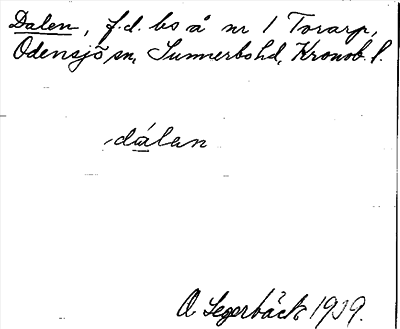 Dalen, f.d. bs å nr 1 Torarp,
Odensjö sn, Sunnerbo hd, Kronob. l.
dálen
A Segerbäck 1939.